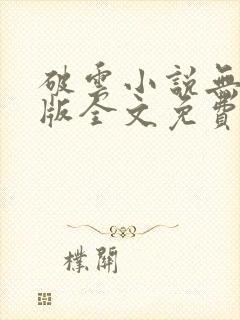 破雲小説無
版全文免費
樸開